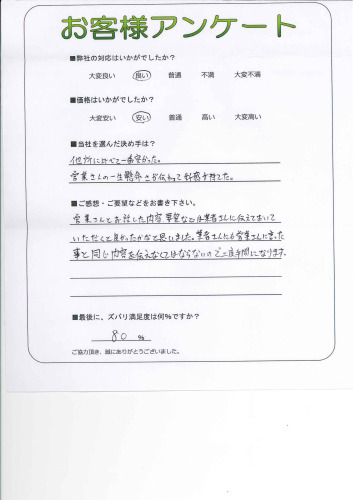 お客様アンケート
■弊社の対応はいかがでしたか?
大変良い 良い 普通 不満 大変不満
■価格はいかがでしたか?
大変安い 安い 普通 高い 大変高い
■当社を選んだ決め手は?
他所に比べて一番安かった。
営業さんの一生懸命さが伝わって好感が持てた。
■ご感想・ご要望などをお書き下さい。
営業さんとお話した内容、要望などは業者さんに伝えておいて
いただくと良かったかなと思いました。業者さんにも営業さんに言った
事と同じ内容を伝えなくてはならないので二度手間になります。
■最後に、ズバリ満足度は何%ですか?
80 %
ご協力頂き、誠にありがとうございました。